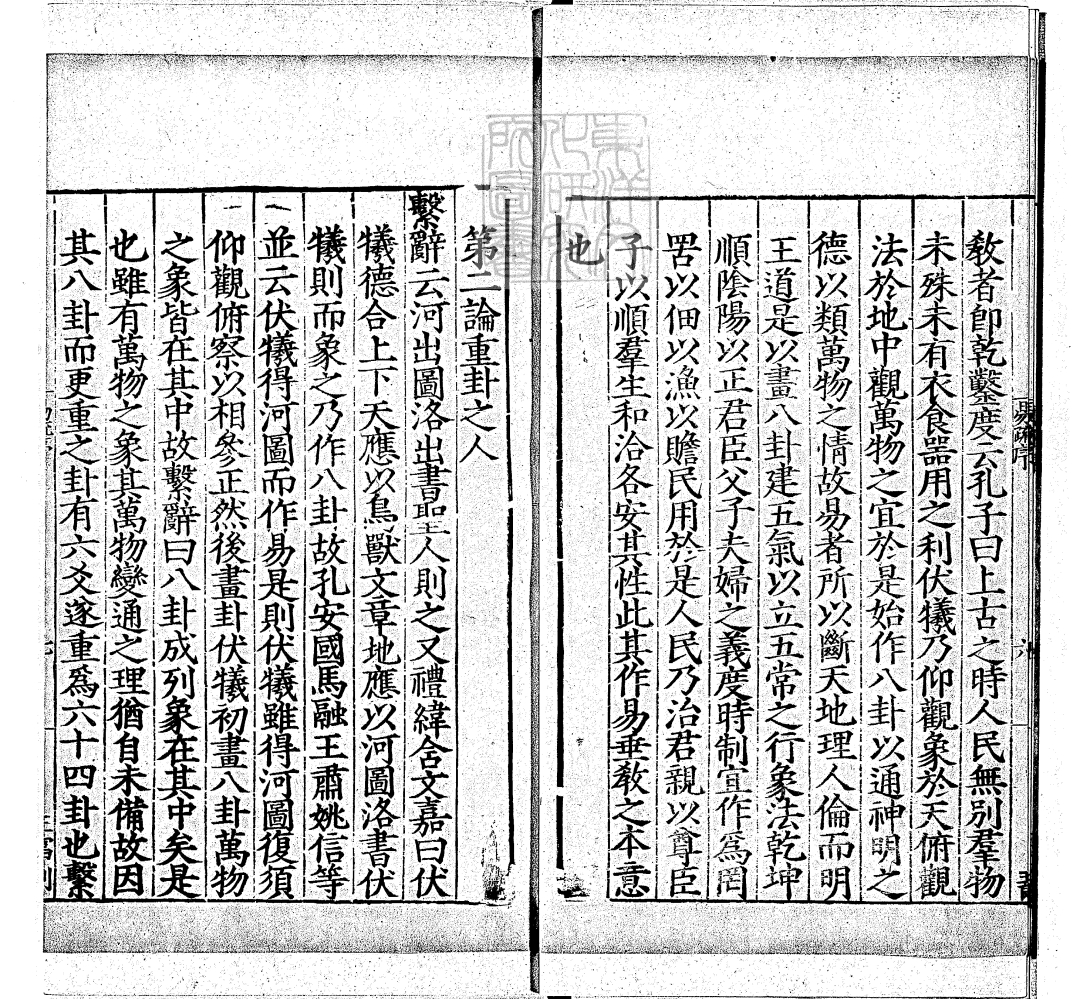 教者即乾鑿度云孔子曰上古之時人民無別羣物
未殊未有衣食器用之利伏犧乃仰觀象於天俯觀
法於地中觀萬物之宜於是始作八卦以通神明之
德以類萬物之情故易者所以斷天地理人倫而明
王道是以畫八卦建五氣以立五常之行象法乾坤
順陰陽以正君臣父子夫婦之義度時制宜作爲罔
罟以佃以漁以贍民用於是人民乃治君親以尊臣
子以順羣生和洽各安其性此其作易垂教之本意
也
第二論重卦之人
繫辭云河出圖洛出書聖人則之又禮緯含文嘉曰伏
犧德合上下天應以鳥獸文章地應以河圖洛書伏
犧則而象之乃作八卦故孔安國馬融王肅姚信等
並云伏犧得河圖而作易是則伏犧雖得河圖復須
仰觀俯察以相參正然後畫卦伏犧初畫八卦萬物
之象皆在其中故繫辭曰八卦成列象在其中矣是
也雖有萬物之象其萬物變通之理猶自未備故因
其八卦而更重之卦有六爻遂重爲六十四卦也繫